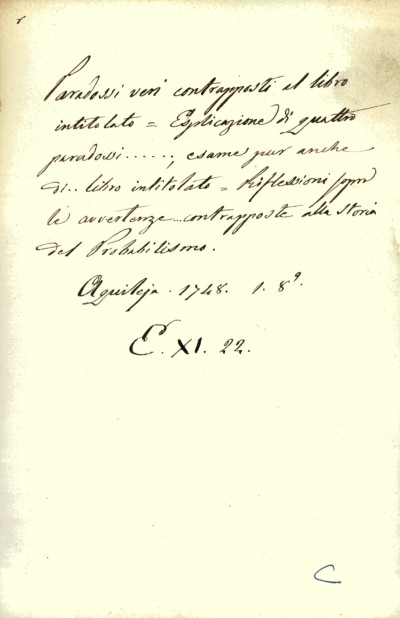 Paradossi veri contrapposti al libro
intitolato = Esplicazione di quattro
paradossi......; esame pur anche
di.. libro intitolato = Riflessioni sopra
le avvertenze...contrapposte alla storia
del Probabilismo.
Aquileja. 1748. 1. 8º.
E. XI. 22.
C